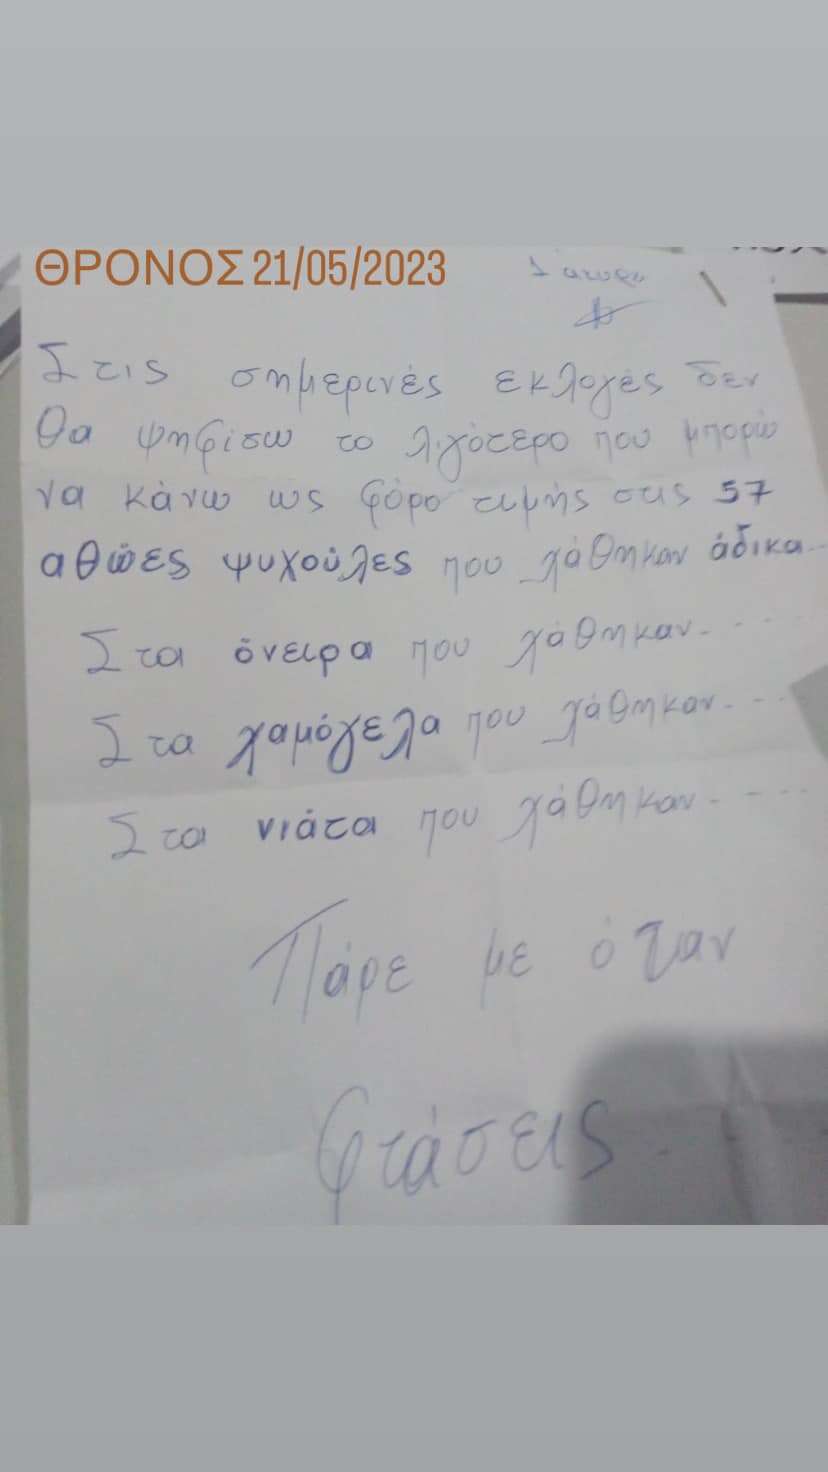 ΘΡΟΝΟΣ 21/05/2023
1 άκυρο
Στις σημερινές εκλογές δεν
θα ψηφίσω το λιγότερο που μπορώ
να κάνω ως φόρο τιμής στις 57
αθώες ψυχούλες που χάθηκαν άδικα..
Στα όνειρα που χάθηκαν.....
Στα χαμόγελα που χάθηκαν.....
Στα νιάτα που χάθηκαν.....
Πάρε με όταν
φτάσεις